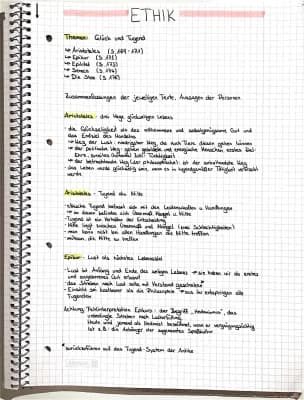 ETHIK
Themen: Glück und Tugend
↳ Aristoteles (S. 169-171)
↳ Epikur (S. 172)
↳ Epiktet (S. 173)
↳ Seneca (S. 174)
↳ Die Stoa (S. 176)
Zusammenfassungen der jeweiligen Texte, Aussagen der Personen
Aristoteles - drei Wege glückseligen Lebens
- die Glückseligkeit als das vollkommene und selbstgenügsame Gut und
das Endziel des Handelns
↳ Weg der Lust: niedrigster Weg, da auch Tiere diesen gehen können
↳ der politische Weg: edlere und energische Menschen
↳ der betrachtende Weg (der philosophische): ist der
- das Leben würde glückselig sein, wenn es in Tätigkeit verbracht
werde
Aristoteles - Tugend als Mitte
- ethische Tugend befasst sich mit den Leidenschaften und Handlungen
↳ zu denen gehören Übermaß, Mangel u. Mitte
- Tugend ist ein Verhalten der Entscheidung
- Mitte liegt zwischen Übermaß und Mangel (zwei Schlechtigkeiten)
- man kann nicht bei allen Handlungen die Mitte treffen
- mühsam, die Mitte zu treffen
Epikur - Lust als höchstes Lebensziel
- Lust ist Anfang und Ende des seligen Lebens → sie haben wir als erstes
und angeborenes Gut erkannt
- das Streben nach Lust solle mit Verstand geschehen*
- Einsicht sei kostbarer als die Philosophie → aus ihr entspringen alle
Tugenden
Achtung, Fehlinterpretation Epikurs: der Begriff „Hedonismus", das
unbedingte Streben nach Lusterfüllung
Heute wird jemand als Hedonist bezeichnet, wenn er vergnügungssüchtig
ist z.B. die Anhänger der sogenannten Spaßkultur
* zurückzuführen auf das Tugend-System der Antike